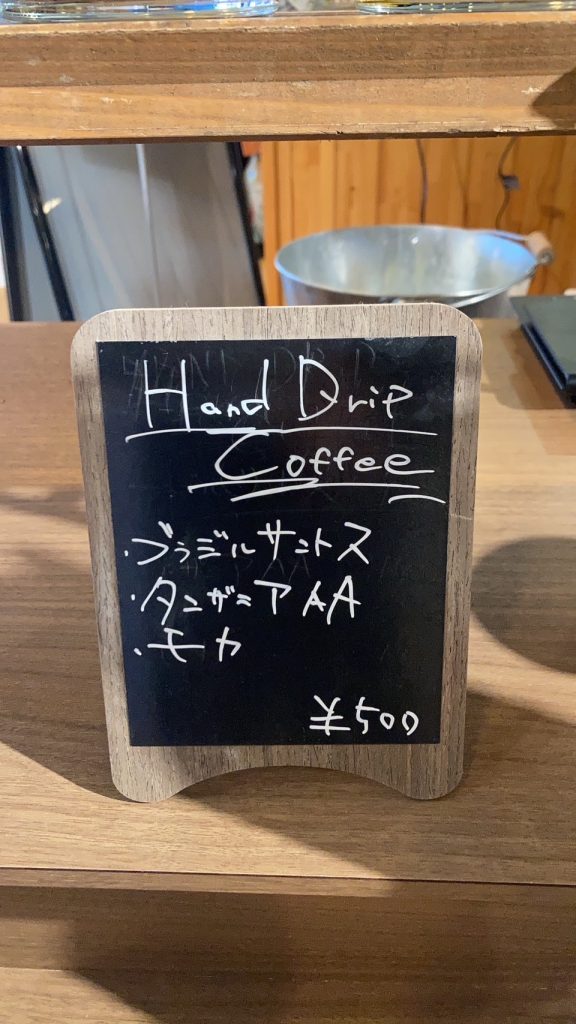 Hand Drip
Coffee
・ブラジルサントス
・タンザニアAA
・モカ
¥500